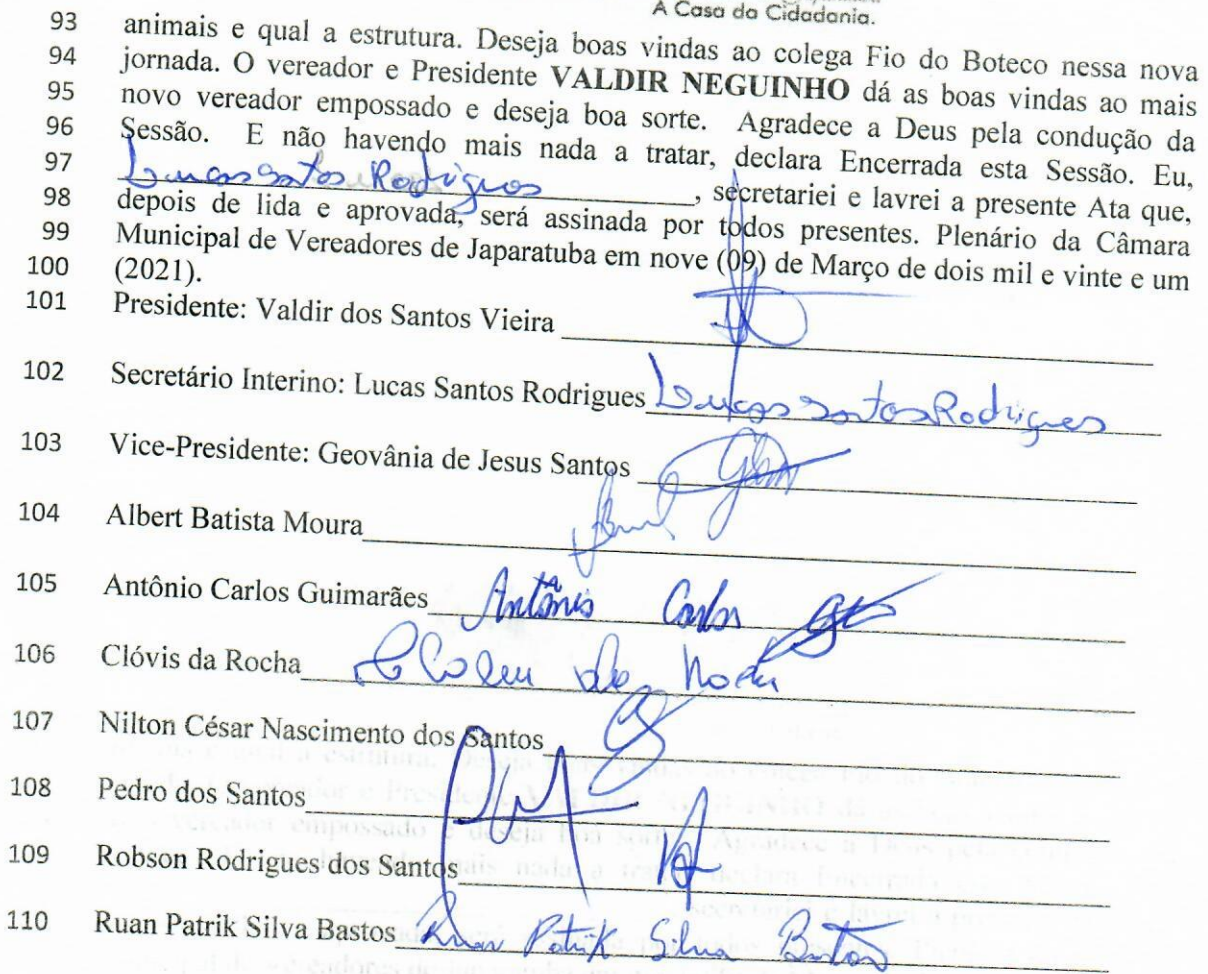 A Casa da Cidadania.
93 animais e qual a estrutura. Deseja boas vindas ao colega Fio do Boteco nessa nova
94 jornada. O vereador e Presidente VALDIR NEGUINHO dá as boas vindas ao mais
95 novo vereador empossado e deseja boa sorte. Agradece a Deus pela condução da
96 Sessão. E não havendo mais nada a tratar, declara Encerrada esta Sessão. Eu,
97 Lucas Santos Rodrigues, secretariei e lavrei a presente Ata que,
98 depois de lida e aprovada, será assinada por todos presentes. Plenário da Câmara
99 Municipal de Vereadores de Japaratuba em nove (09) de Março de dois mil e vinte e um
100 (2021).
101 Presidente: Valdir dos Santos Vieira
102 Secretário Interino: Lucas Santos Rodrigues Lucas Santos Rodrigues
103 Vice-Presidente: Geovânia de Jesus Santos
104 Albert Batista Moura
105 Antônio Carlos Guimarães Antônio Carlos
106 Clóvis da Rocha
107 Nilton César Nascimento dos Santos
108 Pedro dos Santos
109 Robson Rodrigues dos Santos
110 Ruan Patrik Silva Bastos Ruan Patrik Silva Bastos